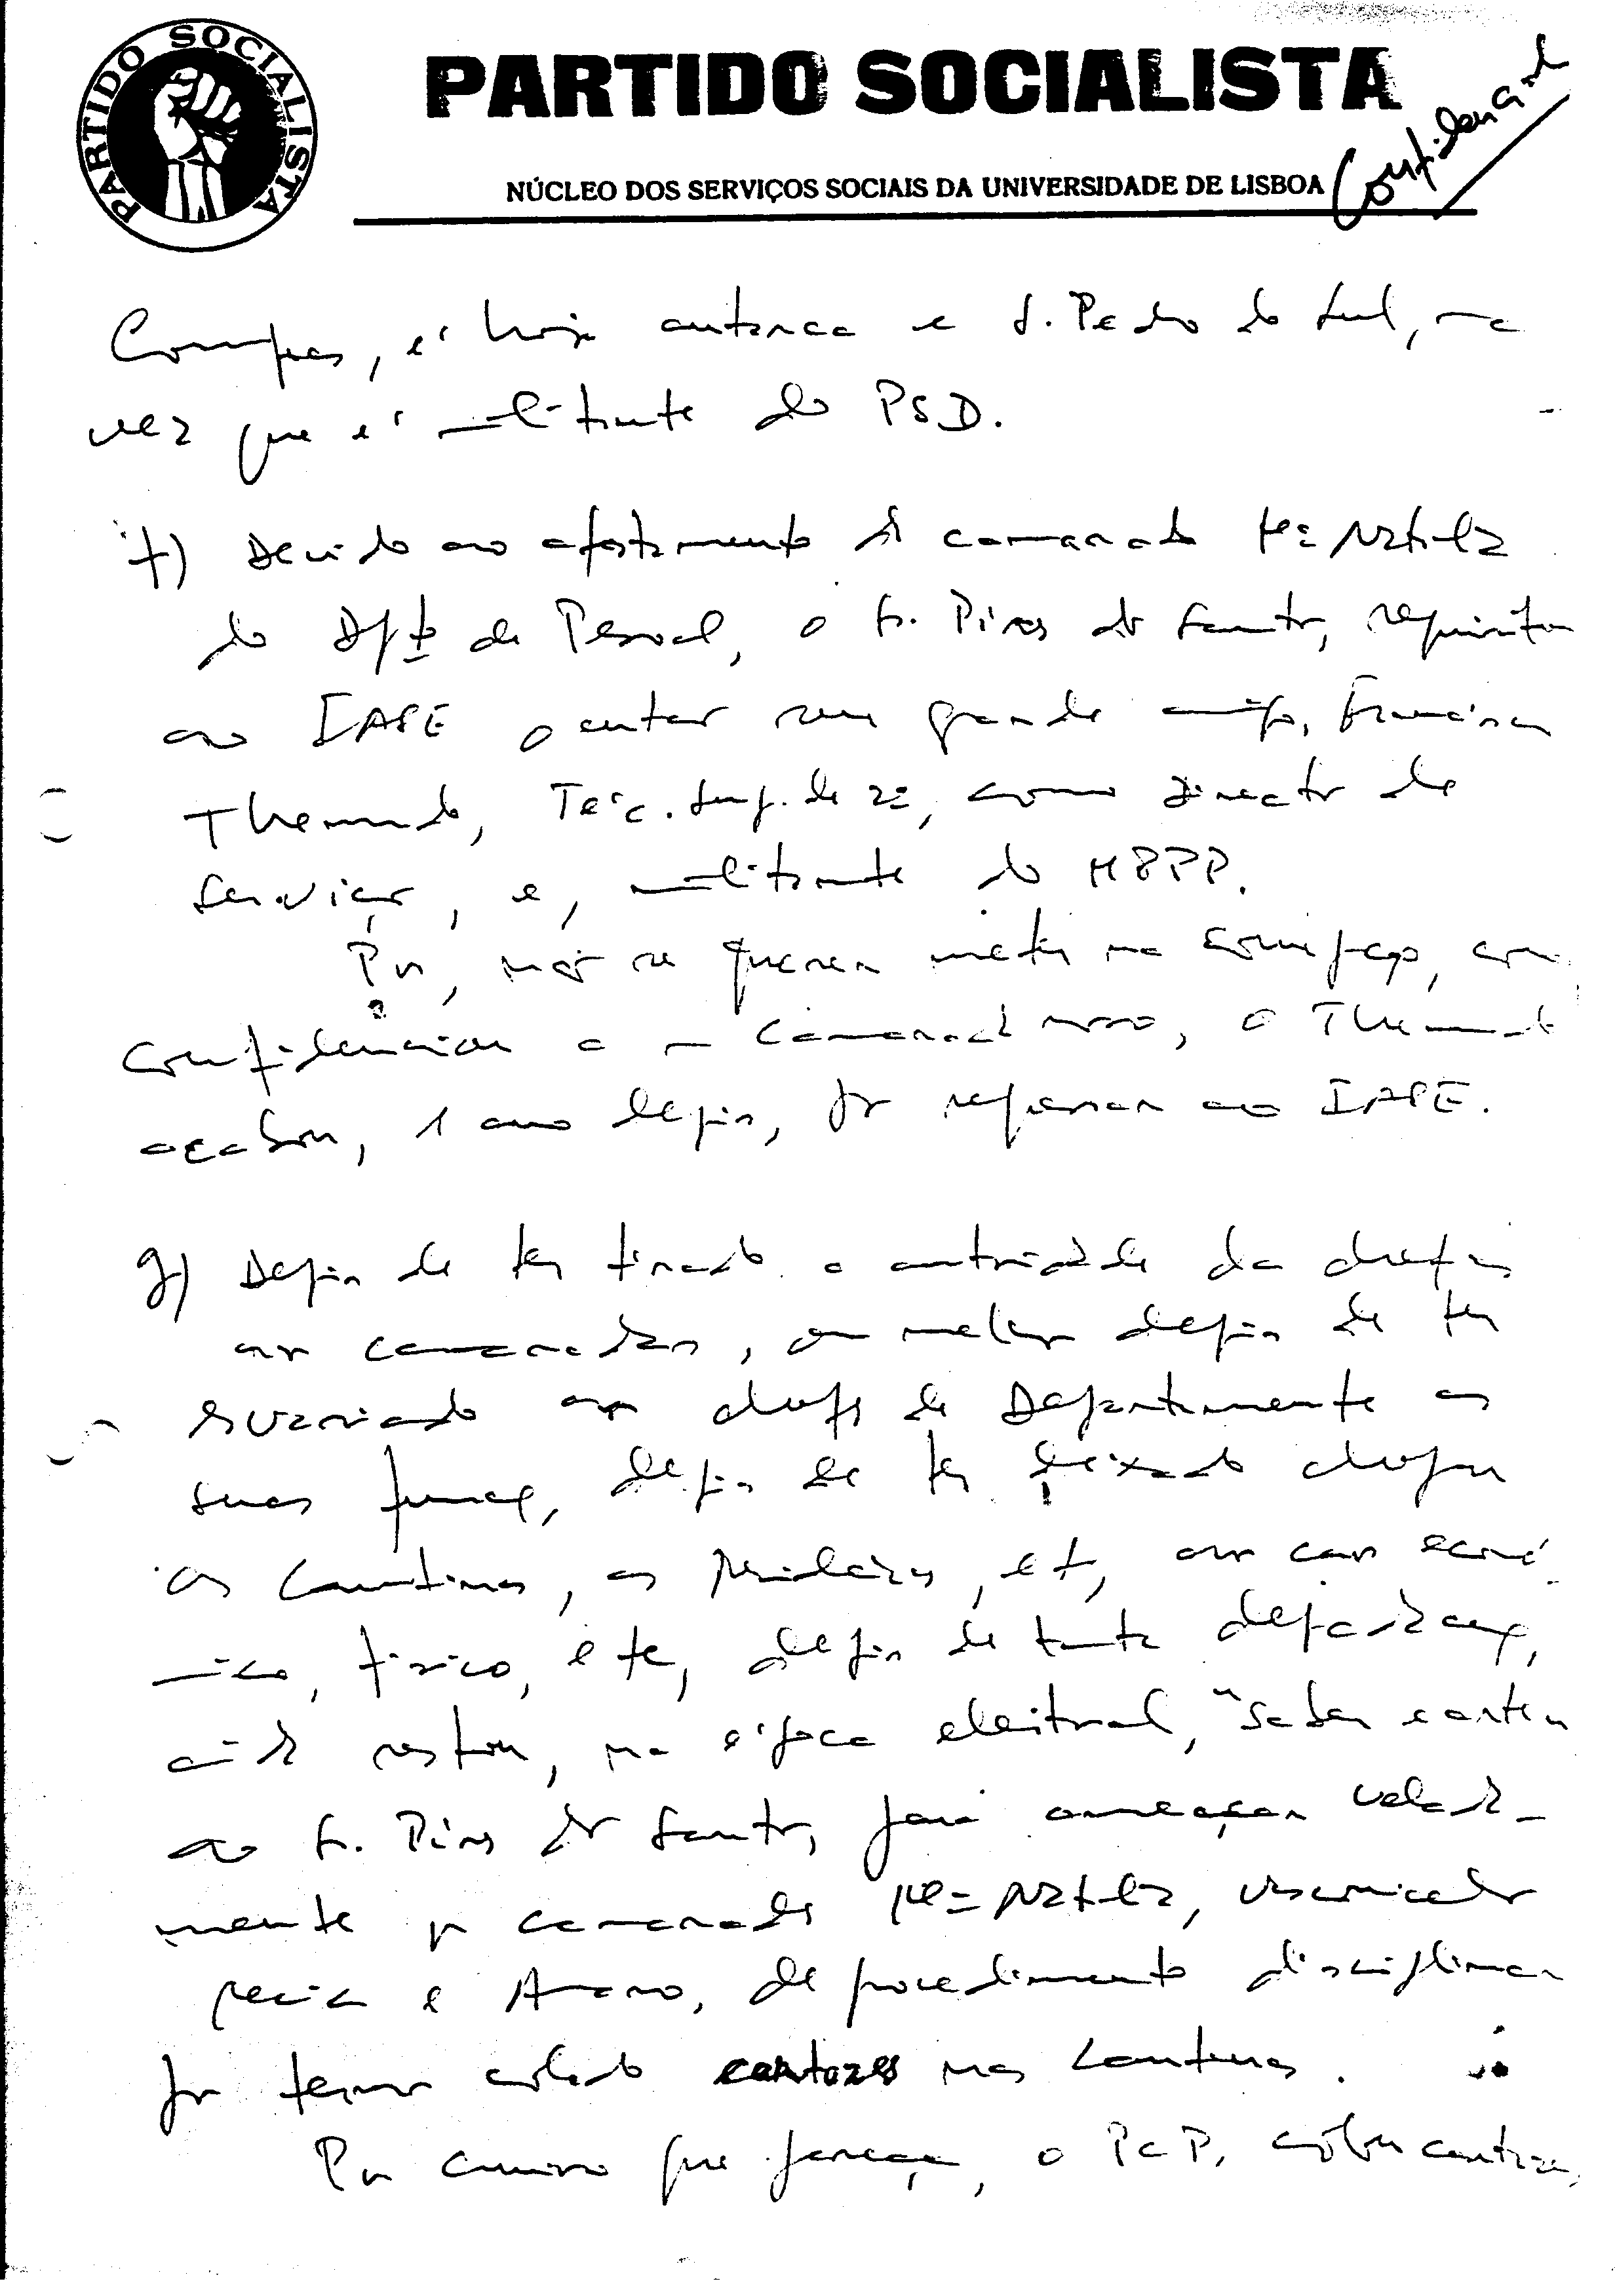 PARTIDO SOCIALISTA
PARTIDO SOCIALISTA
NÚCLEO DOS SERVIÇOS SOCIAIS DA UNIVERSIDADE DE LISBOA
Confidencial
Compras, é hoje autarca e S. Pedro do Sul,
vez que é militante do PSD.
f) Devido ao afastamento da camarada Mª Natália
do Dptº de Pessoal, o Sr. Pires dos Santos, requisitou
ao IASE o seu grande amigo, Francisco
Themudo, Téc. Sup. de 2ª, como Director de
Serviços, e, militante do MRPP.
Por não se querer meter na , como
confidenciou a um camarada nosso, o Themudo
acabou, 1 ano depois, por regressar ao IASE.
g) Depois de ter tirado a autoridade da chefia
aos camaradas, ou melhor depois de ter
esvaziado aos chefes de Departamento as
suas funções, depois de ter deixado chegar
as Cantinas, as Residências, etc, ao caos econó
mico, físico, etc, depois de tanta
ainda restou, na época eleitoral, "saber e arte"
ao Sr. Pires dos Santos, para ameaçar velada-
mente os camaradas Mª Natália,
e Amaro, de procedimento disciplinar
por terem colado cartazes nas Cantinas.
Por curioso que pareça, o PCP, colou cartazes,